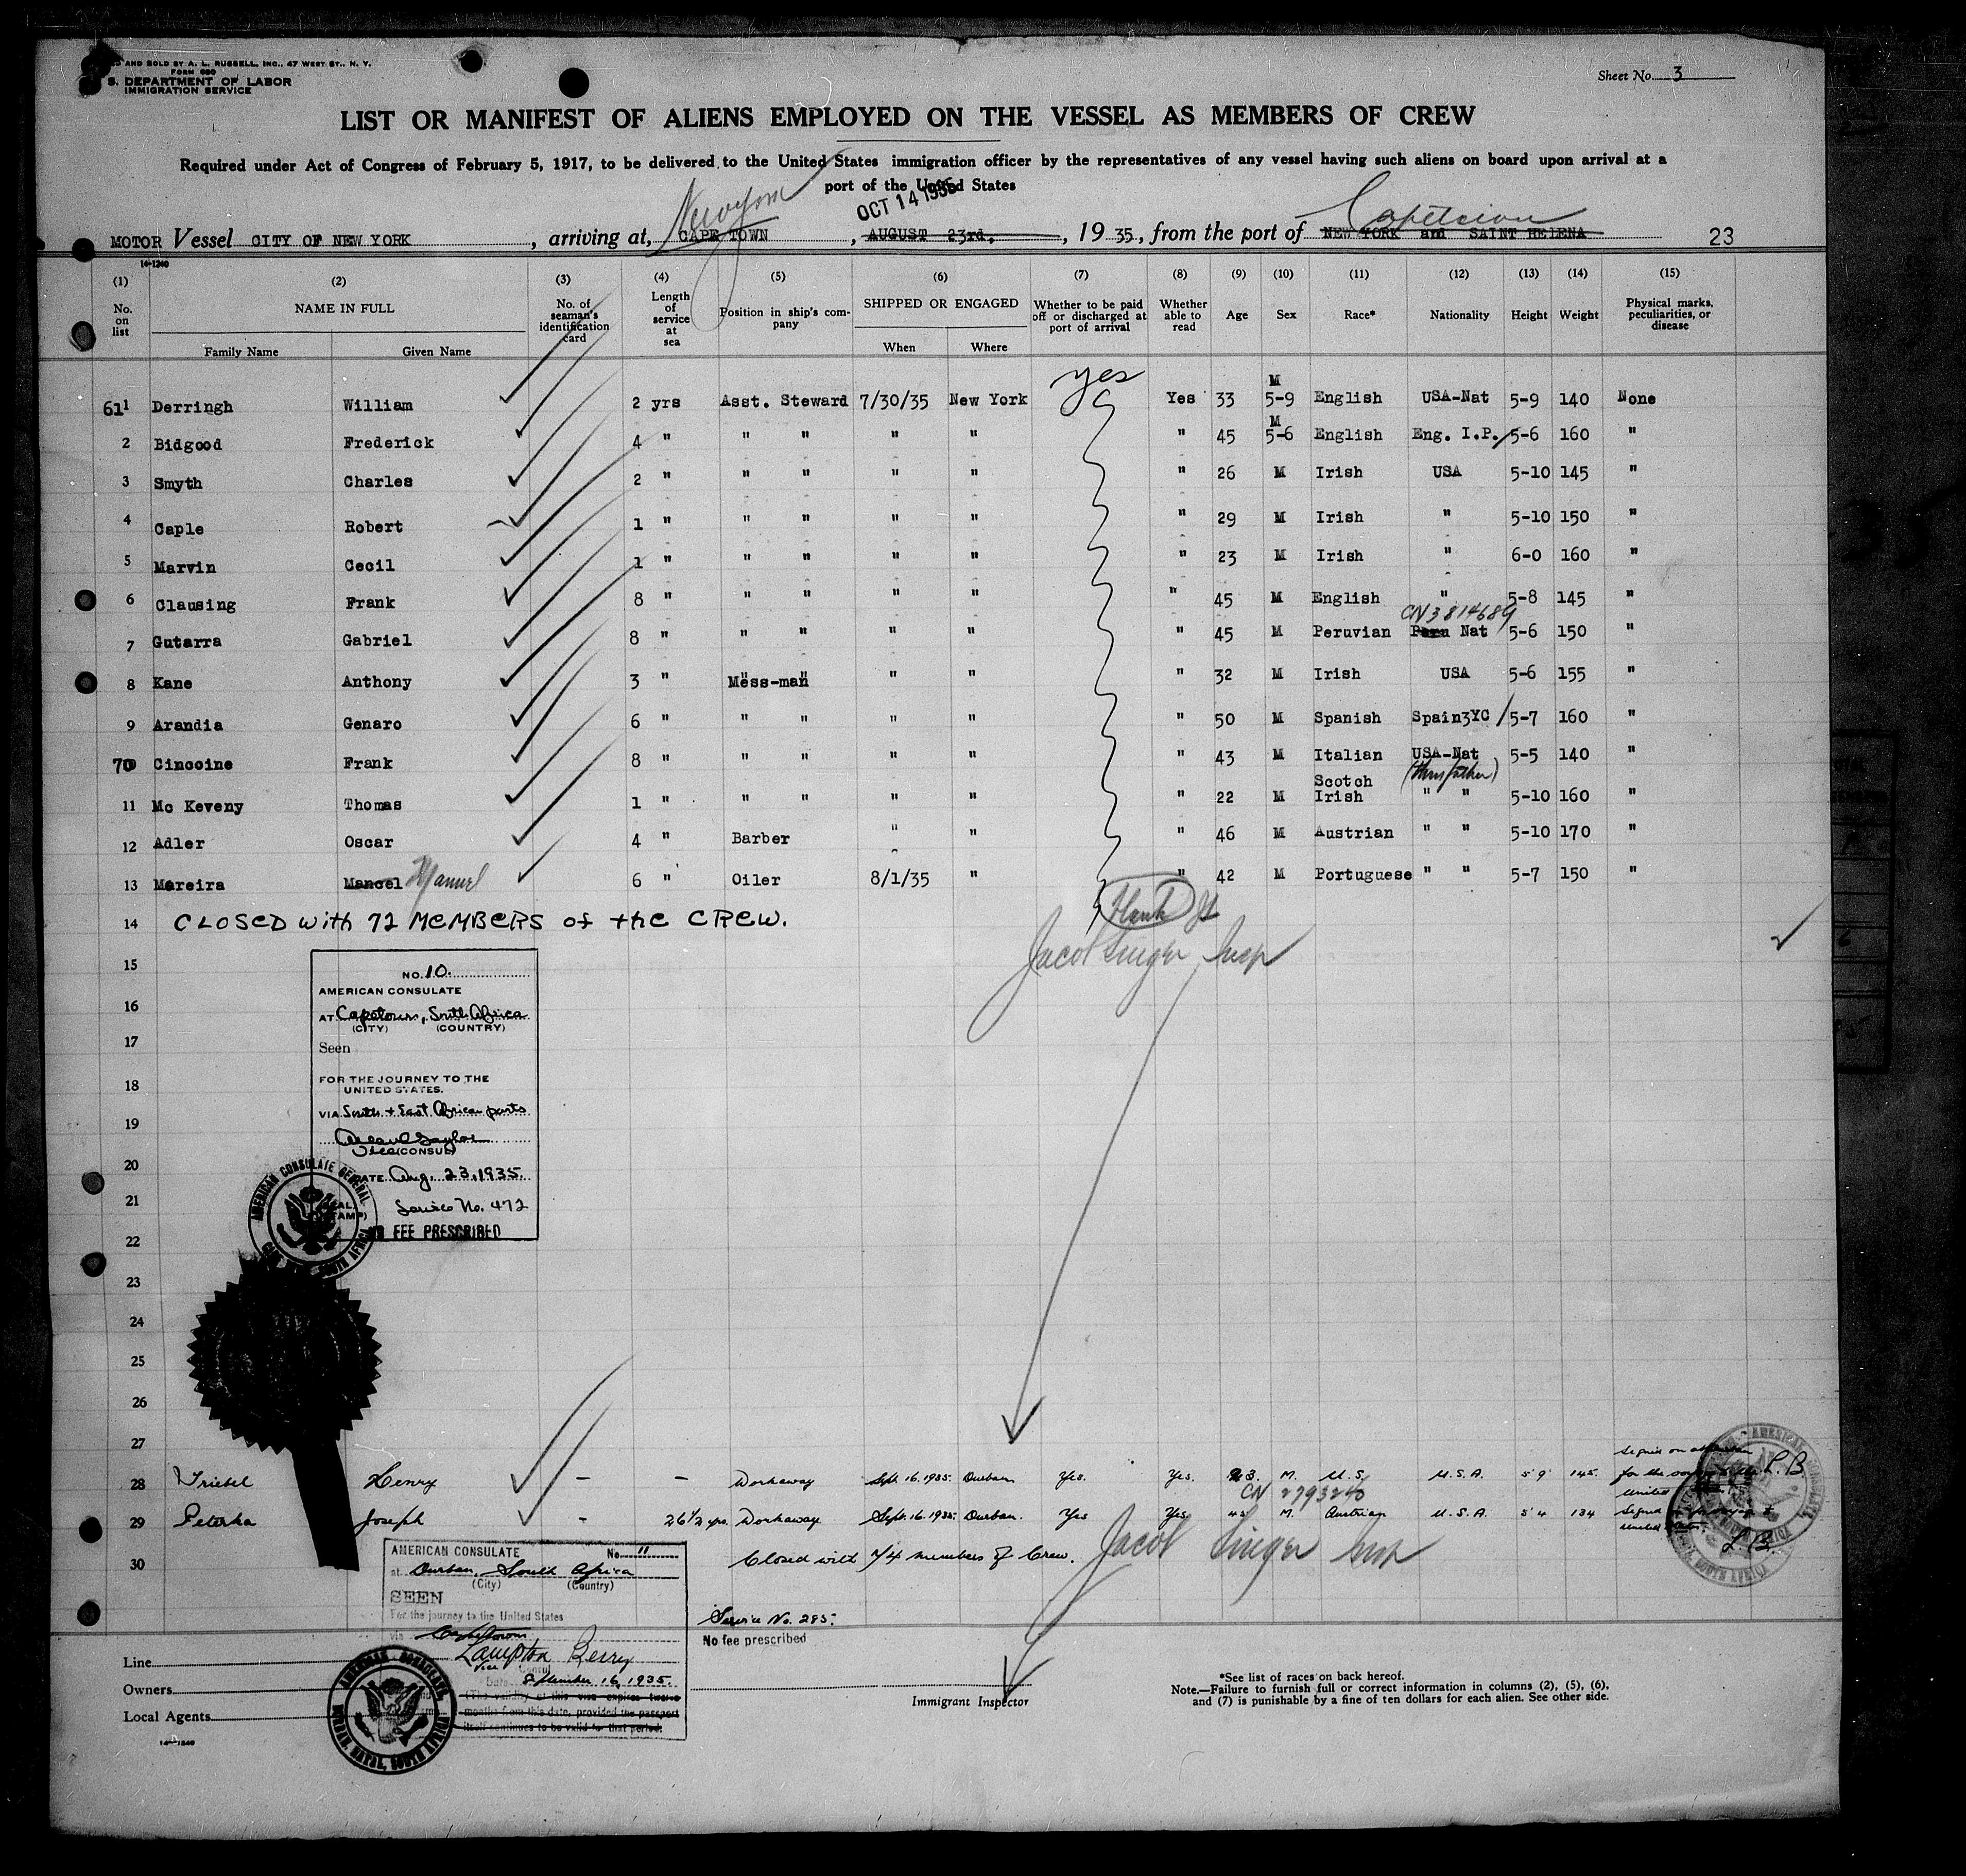 AND SOLD BY A. L. RUSSELL, INC., 47 WEST ST., N. Y.
FORM 680
S. DEPARTMENT OF LABOR
IMMIGRATION SERVICE
Sheet No. 3
LIST OR MANIFEST OF ALIENS EMPLOYED ON THE VESSEL AS MEMBERS OF CREW
Required under Act of Congress of February 5, 1917, to be delivered to the United States immigration officer by the representatives of any vessel having such aliens on board upon arrival at a
port of the United States
New York OCT 14 1935 Capetown
MOTOR Vessel CITY OF NEW YORK, arriving at, CAPE TOWN, AUGUST 23rd, 19 35, from the port of NEW YORK and SAINT HELENA 23
14-1240
(1) (2) (3) (4) (5) (6) (7) (8) (9) (10) (11) (12) (13) (14) (15)
No. on list NAME IN FULL No. of seaman's identification card Length of service at sea Position in ship's company SHIPPED OR ENGAGED Whether to be paid off or discharged at port of arrival Whether able to read Age Sex Race* Nationality Height Weight Physical marks, peculiarities, or disease
Family Name Given Name When Where
61 1 Derringh William 2 yrs Asst. Steward 7/30/35 New York yes Yes 33 M 5-9 English USA-Nat 5-9 140 None
2 Bidgood Frederick 4 " " " " " " 45 M 5-6 English Eng. I.P. 5-6 160 "
3 Smyth Charles 2 " " " " " " 26 M Irish USA 5-10 145 "
4 Caple Robert 1 " " " " " " 29 M Irish " 5-10 150 "
5 Marvin Cecil 1 " " " " " " 23 M Irish " 6-0 160 "
6 Clausing Frank 8 " " " " " " 45 M English " 5-8 145 "
CN 3814689
7 Gutarra Gabriel 8 " " " " " " 45 M Peruvian Peru Nat 5-6 150 "
8 Kane Anthony 3 " Mess-man " " " 32 M Irish USA 5-6 155 "
9 Arandia Genaro 6 " " " " " " 50 M Spanish Spain3YC 5-7 160 "
70 Cincoine Frank 8 " " " " " " 43 M Italian USA-Nat 5-5 140 "
(thru father)
11 Mc Keveny Thomas 1 " " " " " " 22 M Scotch Irish " " 5-10 160 "
12 Adler Oscar 4 " Barber " " " 46 M Austrian " " 5-10 170 "
13 Mareira Mancel Manuel 6 " Oiler 8/1/35 " " 42 M Portuguese " " 5-7 150 "
14 CLOSED with 72 MEMBERS of the CREW.
Jacob Singer Insp
15
NO. 10.
AMERICAN CONSULATE
16
AT Capetown, South Africa
(CITY) (COUNTRY)
17
Seen
18
FOR THE JOURNEY TO THE
UNITED STATES.
VIA South & East African ports
19
Vice (CONSUL)
20
DATE Aug. 23, 1935.
21
Service No. 472
NO FEE PRESCRIBED
AMERICAN CONSULATE GENERAL
22
23
24
25
26
27
28 Triebel Henry - - Workaway Sept. 16. 1935. Durban Yes. Yes. 23. M. U.S. U.S.A. 5'9 145. Signed on as
for the voyage to the United States L.B.
CN 2793240
29 Peterka Joseph - 26 1/2 yrs. Workaway. Sept. 16. 1935. Durban. Yes Yes 45 M. Austrian U.S.A. 5'4 134 Signed
United States. L.B.
30 Closed with 74 members of Crew. Jacob Singer Insp
AMERICAN CONSULATE No. 11
at Durban, South Africa
(City) (Country)
SEEN
For the journey to the United States
via Capetown
Lampton Berry
Vice Consul
Date September 16, 1935.
(The validity of this visa expires twelve
months from this date, provided the passport
itself continues to be valid for that period.
AMERICAN CONSULATE, DURBAN, NATAL, SOUTH AFRICA
Service No. 285.
No fee prescribed
Line
Owners
Local Agents
Immigrant Inspector
*See list of races on back hereof.
Note.—Failure to furnish full or correct information in columns (2), (5), (6),
and (7) is punishable by a fine of ten dollars for each alien. See other side.